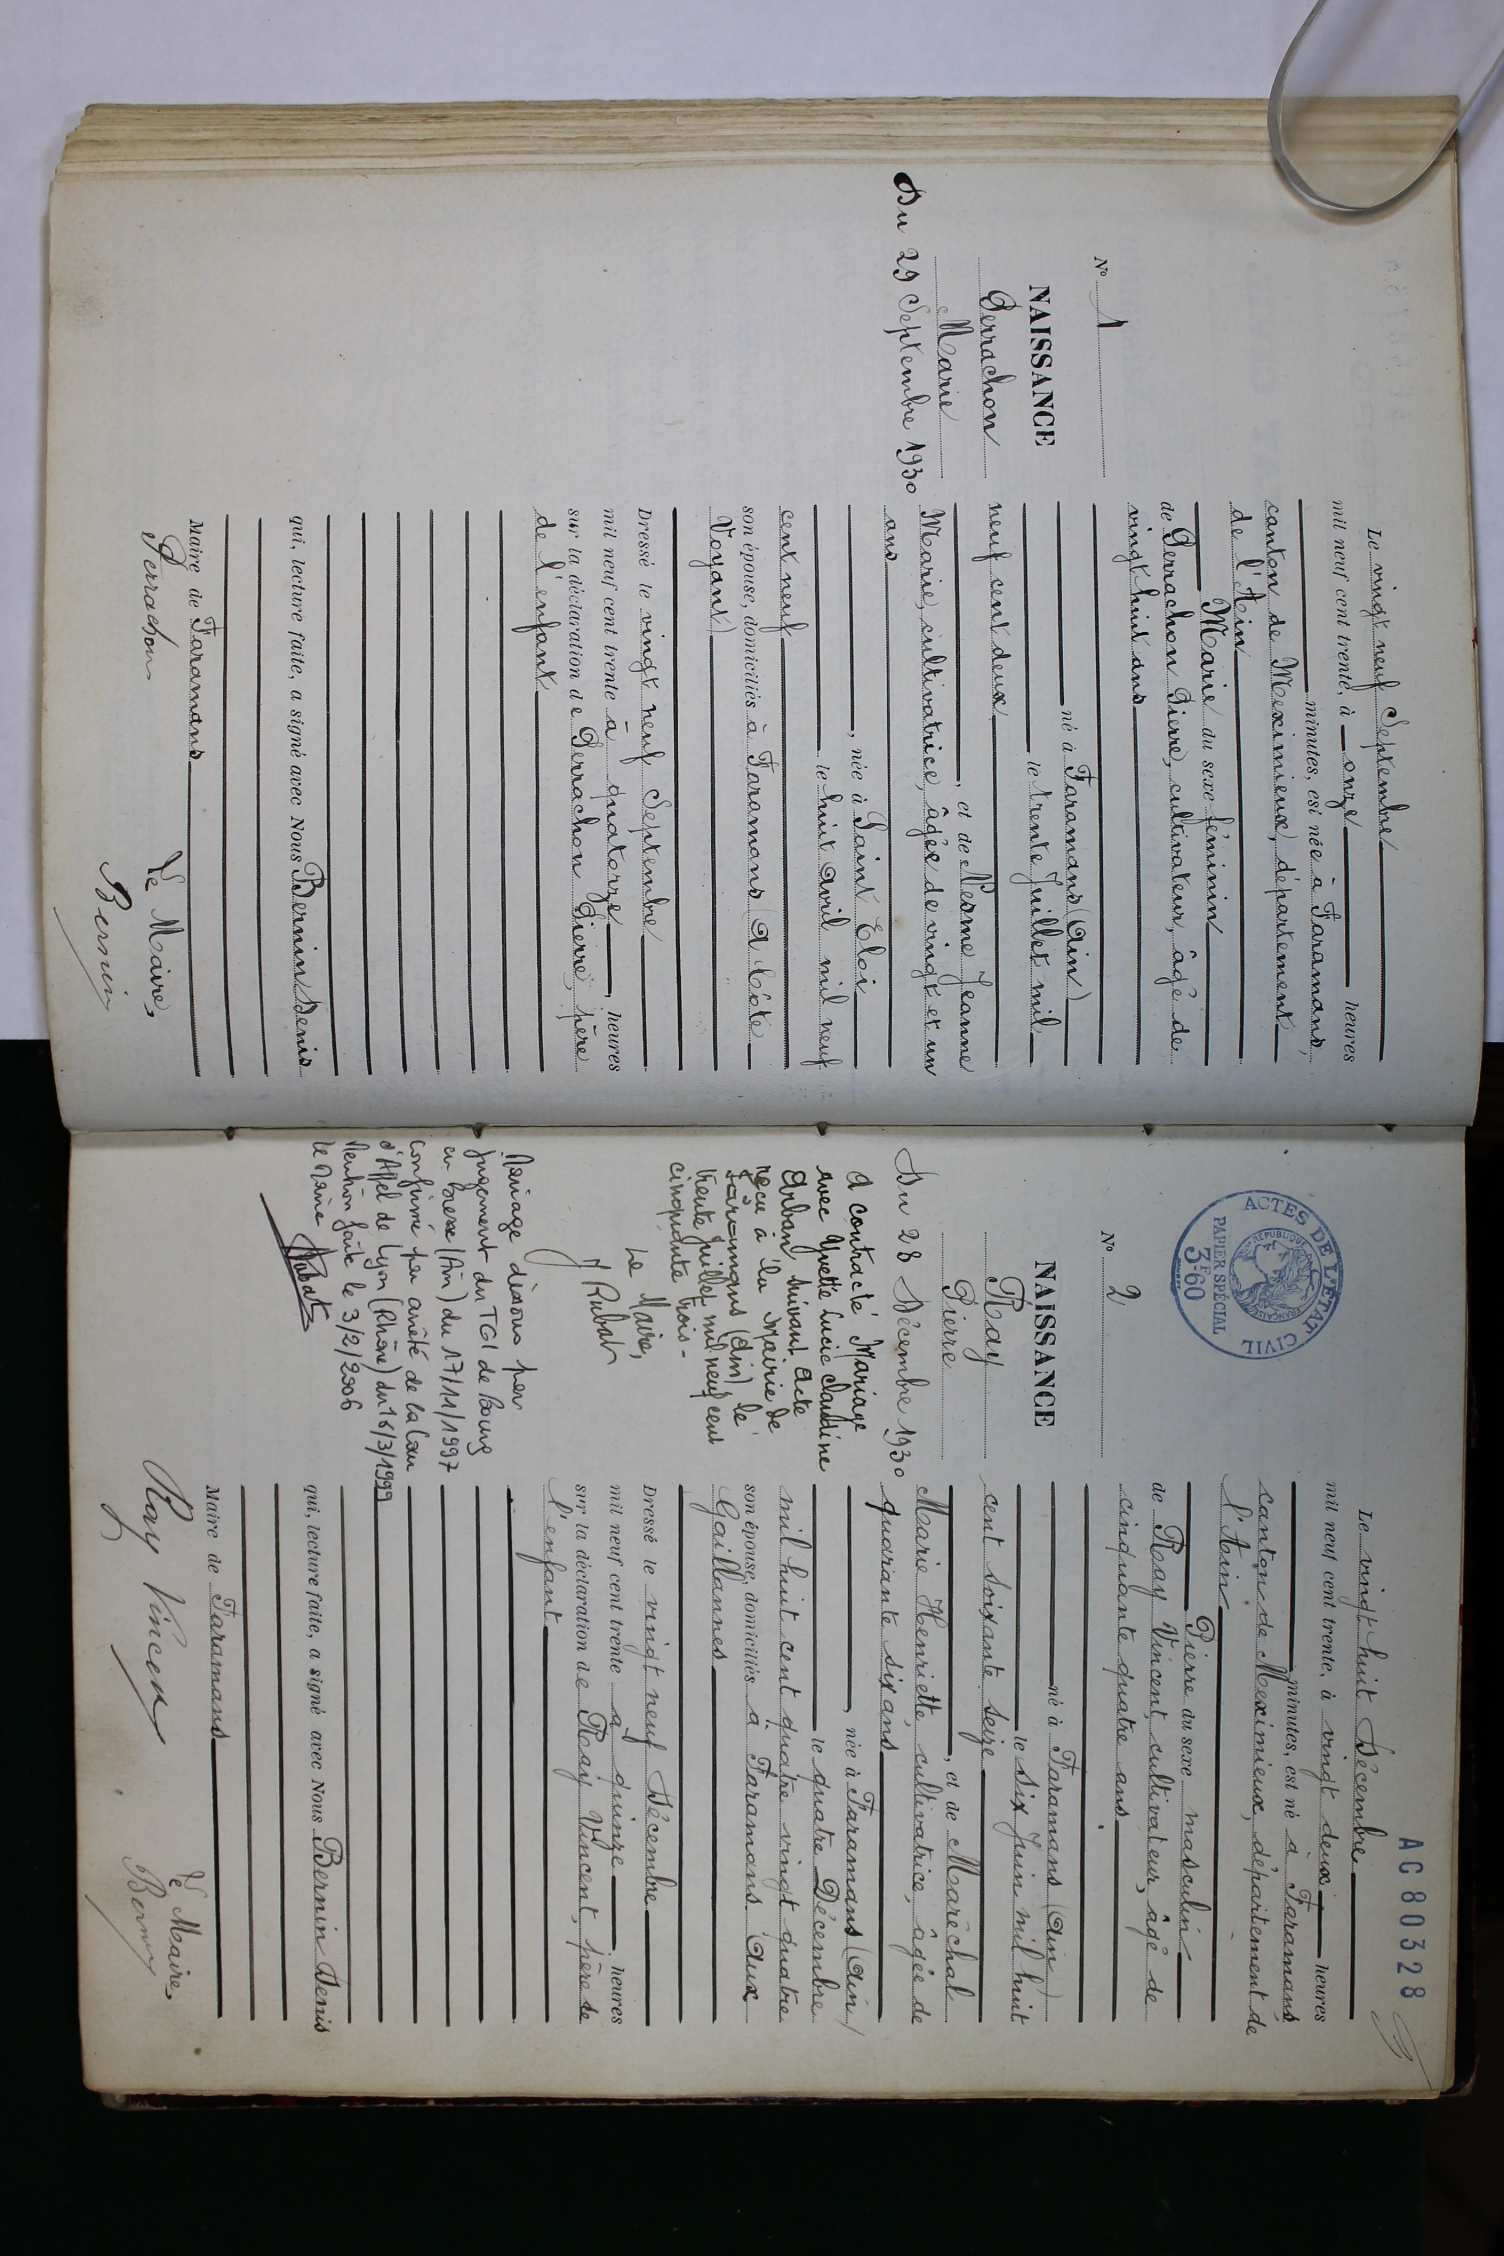 N° 1
NAISSANCE
Perrachon
Marie
Du 29 Septembre 1930
Le vingt neuf Septembre
mil neuf cent trente, à onze heures
minutes, est née à Faramans,
canton de Meximieux, département
de l'Ain
Marie du sexe féminin
de Perrachon Pierre, cultivateur, âgé de
vingt huit ans
né à Faramans (Ain)
le trente Juillet mil
neuf cent deux
, et de Nesme Jeanne
Marie, cultivatrice, âgée de vingt et un
ans
, née à Saint Eloi
le huit avril mil neuf
cent neuf
son épouse, domiciliés à Faramans (A Côte
Voyant)
Dressé le vingt neuf Septembre
mil neuf cent trente à quatorze heures
sur la déclaration de Perrachon Pierre, père
de l'enfant
qui, lecture faite, a signé avec Nous Bernin Denis
Maire de Faramans
Perrachon
Le Maire,
Bernin
ACTES DE L'ÉTAT CIVIL
RÉPUBLIQUE FRANÇAISE
PAPIER SPÉCIAL
3F60
AG80328
N° 2
NAISSANCE
Ray
Pierre
Du 28 Décembre 1930
A contracté Mariage
avec Yvette Lucie Claudine
Arban suivant acte
reçu à la Mairie de
Faramans (Ain), le
trente juillet mil neuf cent
cinquante trois -
Le Maire,
J Rubat
Mariage dissous par
jugement du TGI de Bourg
en Bresse (Ain) du 17/11/1997
confirmé par arrêté de la Cour
d'Appel de Lyon (Rhône) du 16/3/1999
Mention faite le 3/2/2006
Le Maire Rubat
Le vingt huit Décembre
mil neuf cent trente, à vingt deux heures
minutes, est né à Faramans
canton de Meximieux, département de
l'Ain
Pierre du sexe masculin
de Ray Vincent, cultivateur, âgé de
cinquante quatre ans
né à Faramans (Ain)
le Six Juin mil huit
cent soixante seize
, et de Maréchal
Marie Henriette, cultivatrice, âgée de
quarante six ans
, née à Faramans (Ain)
le quatre Décembre
mil huit cent quatre vingt quatre
son épouse, domiciliés à Faramans (Aux
Gaillannes
Dressé le vingt neuf Décembre
mil neuf cent trente à quinze heures
sur la déclaration de Ray Vincent, père de
l'enfant
qui, lecture faite, a signé avec Nous Bernin Denis
Maire de Faramans
Ray Vincent
Le Maire,
Bernin